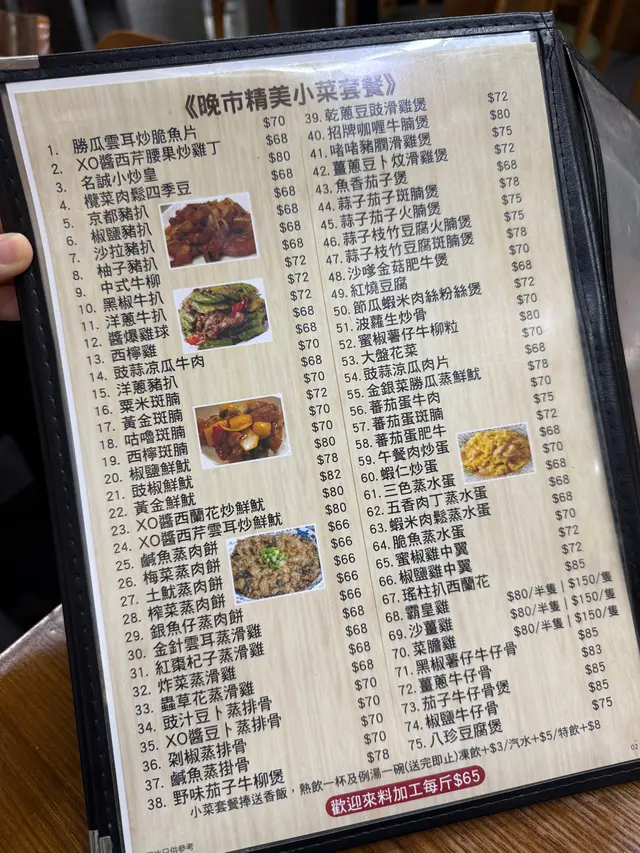 《晚市精美小菜套餐》
1. 勝瓜雲耳炒脆魚片
2. XO醬西芹腰果炒雞丁
3. 名誠小炒皇
4. 欖菜肉鬆四季豆
5. 京都豬扒
6. 椒鹽豬扒
7. 沙拉豬扒
8. 柚子豬扒
9. 中式牛柳
10. 黑椒牛扒
11. 洋蔥牛扒
12. 醬爆雞球
13. 西檸雞
14. 豉蒜涼瓜牛肉
15. 洋蔥豬扒
16. 粟米斑腩
17. 黃金斑腩
18. 咕嚕斑腩
19. 西檸斑腩
20. 椒鹽鮮魷
21. 豉椒鮮魷
22. 黃金鮮魷
23. XO醬西蘭花炒鮮魷
24. XO醬西芹雲耳炒鮮魷
25. 鹹魚蒸肉餅
26. 梅菜蒸肉餅
27. 土魷蒸肉餅
28. 榨菜蒸肉餅
29. 銀魚仔蒸肉餅
30. 金針雲耳蒸滑雞
31. 紅棗杞子蒸滑雞
32. 炸菜蒸滑雞
33. 蟲草花蒸滑雞
34. 豉汁豆卜蒸排骨
35. XO醬豆卜蒸排骨
36. 剁椒蒸排骨
37. 鹹魚蒸掛骨
38. 野味茄子牛柳煲
$70
$68
$80
$68
$68
$68
$68
$68
$72
$72
$72
$70
$68
$68
$70
$72
$70
$70
$70
$80
$78
$82
$80
$80
$66
$66
$66
$66
$66
$68
$68
$68
$68
$70
$70
$70
$70
$78
39. 乾蔥豆豉滑雞煲
40. 招牌咖喱牛腩煲
41. 啫啫豬膶滑雞煲
42. 薑蔥豆卜炆滑雞煲
43. 魚香茄子煲
44. 蒜子茄子斑腩煲
45. 蒜子茄子火腩煲
46. 蒜子枝竹豆腐火腩煲
47. 蒜子枝竹豆腐斑腩煲
48. 沙嗲金菇肥牛煲
49. 紅燒豆腐
50. 節瓜蝦米肉絲粉絲煲
51. 波蘿生炒骨
52. 蜜椒薯仔牛柳粒
53. 大盤花菜
54. 豉蒜涼瓜肉片
55. 金銀菜勝瓜蒸鮮魷
56. 蕃茄蛋牛肉
57. 蕃茄蛋斑腩
58. 蕃茄蛋肥牛
59. 午餐肉炒蛋
60. 蝦仁炒蛋
61. 三色蒸水蛋
62. 五香肉丁蒸水蛋
63. 蝦米肉鬆蒸水蛋
64. 脆魚蒸水蛋
65. 蜜椒雞中翼
66. 椒鹽雞中翼
67. 瑤柱扒西蘭花
68. 霸皇雞
69. 沙薑雞
70. 菜膽雞
71. 黑椒薯仔牛仔骨
72. 薑蔥牛仔骨
73. 茄子牛仔骨煲
74. 椒鹽牛仔骨
75. 八珍豆腐煲
$72
$80
$75
$72
$68
$78
$75
$75
$78
$70
$68
$72
$70
$80
$70
$68
$78
$68
$75
$72
$68
$70
$68
$68
$68
$70
$72
$72
$85
$80/半隻 | $150/隻
$80/半隻 | $150/隻
$80/半隻 | $150/隻
$85
$83
$85
$85
$75
小菜套餐捧送香飯，熱飲一杯及例湯一碗(送完即止)凍飲+$3/汽水+$5/特飲+$8
歡迎來料加工每斤$65
02
只供參考